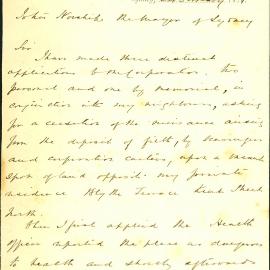 John Mayor of Sydney
Sir
I have made three distinct
applications to the Corporation. two
personal and one by memorial, in
conjunction with my neighbours, asking
for a cessation of the nuisance arising
from the deposit of filth, by scavengers
and corporation carters, upon a vacant
spot of land opposite my private
residence Blythe Terrace Kent Street
North.
When I first applied the Health
Officer reported the place as dangerous
to health and shortly afterwards